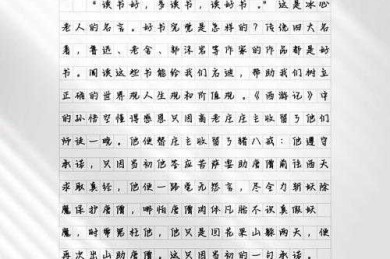 “读书好，多读书，读好书。”这是冰心
老人的名言。好书究竟是怎样的？传说四大名
著，鲁迅、老舍、郭沫若等作家的作品都是好
书。阅读这些书能给我们启迪，帮助我们树立
正确的世界观人生观和价值观。《西游记》中
的孙悟空懂得感恩只因高老庄庄主收留了他们
师徒一晚。他便替庄主收留了猪八戒：他遵守
承诺，只因当初他答应菩萨要助唐僧前往西天
求取真经，他便一路毫无怨言，尽全力斩妖除
魔保护唐僧，哪怕唐僧肉体凡胎不识真假妖
魔，时常冤枉他，他只是回花果山躲两天，便
再次出山助唐僧。这只因当初的一句承诺。